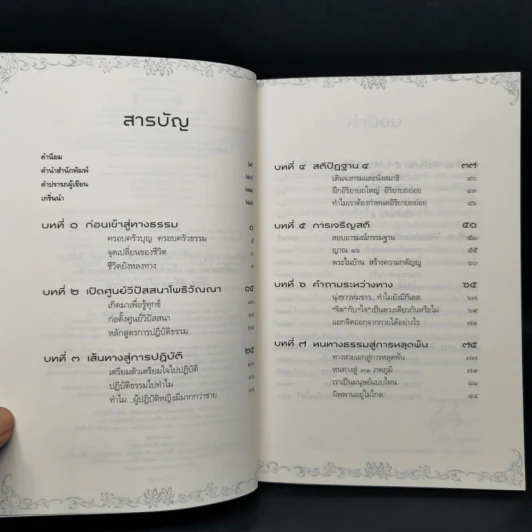 สารบัญ
คำนิยม
คำนำสำนักพิมพ์
คำปรารภผู้เขียน
เกริ่นนำ
บทที่ ๑ ก่อนเข้าสู่ทางธรรม ๑
ครอบครัวบุญ ครอบครัวธรรม
จุดเปลี่ยนของชีวิต
ชีวิตยังหลงทาง
บทที่ ๒ เปิดศูนย์วิปัสสนาโพธิวัณณา ๑๕
เกิดมาเพื่อรู้ทุกข์
ก่อตั้งศูนย์วิปัสสนา
หลักสูตรการปฏิบัติธรรม
บทที่ ๓ เส้นทางสู่การปฏิบัติ ๒๕
เตรียมตัวเตรียมใจไปปฏิบัติ
ปฏิบัติธรรมไปทำไม
ทำไม...ผู้ปฏิบัติหญิงมีมากกว่าชาย
บทที่ ๔ สติปัฏฐาน ๔ ๓๗
เดินจงกรมและนั่งสมาธิ ๔๐
ฝึกอิริยาบถใหญ่ อิริยาบถย่อย
ทำไมเราต้องกำหนดอิริยาบถย่อย
บทที่ ๕ การเจริญสติ ๕๐
สอบอารมณ์กรรมฐาน
ญาณ ๑๖ ๕๕
พระในบ้าน สร้างความสำคัญ
บทที่ ๖ คำถามระหว่างทาง ๖๕
นุ่งขาวห่มขาว...ทำไมยังมีกิเลส
"จิต"กับ"ใจ"เป็นดวงเดียวกันหรือไม่
แยกจิตออกจากกายได้อย่างไร
บทที่ ๗ หนทางธรรมสู่การหลุดพ้น ๗๕
ทางสายเอกสู่การหลุดพ้น ๗๗
หนทางสู่ ๓๑ ภพภูมิ
เราเป็นมนุษย์แบบไหน ๘๑
นิพพานอยู่ไม่ไกล ๘๔